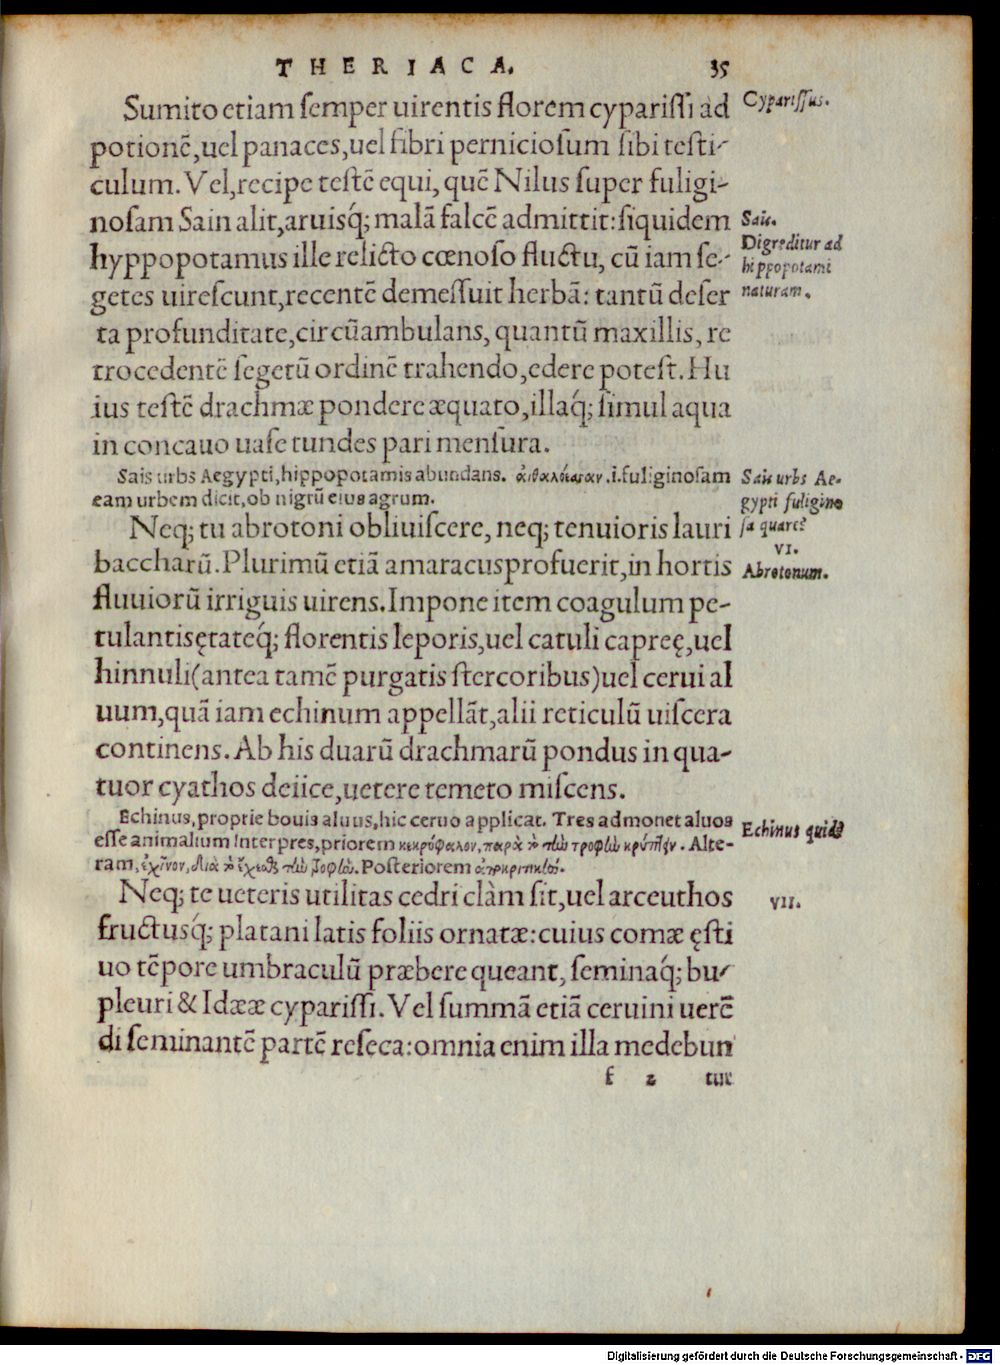 THERIACA. 35
Sumito etiam semper uirentis florem cyparissi ad
potionē,uel panaces,uel fibri perniciosum sibi testi-
culum. Vel,recipe testē equi, quē Nilus super fuligi-
nosam Sain alit,aruisq́; malā falcē admittit:siquidem
hyppopotamus ille relicto cœnoso fluctu, cū iam se-
getes uirescunt,recentē demessuit herbā: tantū deser
ta profunditate,circūambulans, quantū maxillis, re
trocedentē segetū ordinē trahendo,edere potest. Hu
ius testē drachmæ pondere æquato,illaq́; simul aqua
in concauo uase tundes pari mensura.
Sais urbs Aegypti,hippopotamis abundans. αἰθαλόεσσαν.i.fuliginosam
eam urbem dicit,ob nigrū eius agrum.
Neq; tu abrotoni obliuiscere, neq; tenuioris lauri
baccharū. Plurimū etiā amaracusprofuerit,in hortis
fluuiorū irriguis uirens. Impone item coagulum pe-
tulantisętateq́; florentis leporis,uel catuli capreę,uel
hinnuli(antea tamē purgatis stercoribus)uel cerui al
uum,quā iam echinum appellāt,alii reticulū uiscera
continens. Ab his duarū drachmarū pondus in qua-
tuor cyathos deiice,uetere temeto miscens.
Echinus,proprie bouis aluus,hic ceruo applicat. Tres admonet aluos
esse animalium Interpres,priorem κεκρύφαλον, παρὰ τὸ τὴν τροφὴν κρύπτειν. Alte-
ram, ἐχῖνον, διὰ τὸ ἔχειν τὴν τροφὴν. Posteriorem
Neq; te ueteris utilitas cedri clàm sit,uel arceuthos
fructusq́; platani latis foliis ornatæ:cuius comæ ęsti
uo tēpore umbraculū præbere queant, seminaq́; bu-
pleuri & Idææ cyparissi. Vel summā etiā ceruini uerē
di seminantē partē reseca:omnia enim illa medebun
f 2 tur
Cyparissus.
Sais.
Digreditur ad
hippopotami
naturam.
Sais urbs Ae-
gypti fuligino
sa quare?
VI.
Abrotonum.
Echinus quid?
VII.
Digitalisierung gefördert durch die Deutsche Forschungsgemeinschaft - DFG